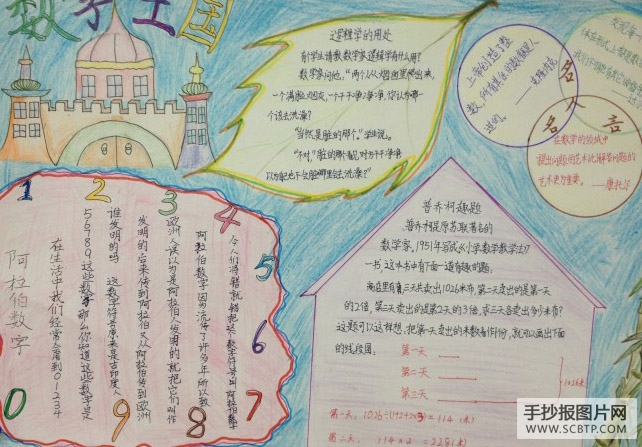 数学王国
逻辑学的用处
有学生请教数学家逻辑学有什么用?
数学家问他,“两个人从烟囱里爬出来,
一个满脸烟灰,一个干干净净,你认为哪一
个该去洗澡?”
“当然是脏的那个。”学生说。
“不对,脏的那个看见对方干干净净
以为自己也不会脏哪里会去洗澡?”
上帝创造了整
数,所有其余的数都是人
造的。
名人言
在数学的领域中
提出问题的艺术比解答问题的
艺术更为重要。——康托尔
1 2 3 4 5 6 7 8 9 0
阿拉伯数字
在生活中我们经常会看到01234
56789这些数字那么你知道这些数字是
谁发明的吗
这数字符号原来是古印度人
发明的后来传到阿拉伯又从阿拉伯传到欧洲
欧洲人误以为是阿拉伯人发明的就把它们叫作
阿拉伯数字因为流传了许多年
普乔柯趣题
普乔柯是原苏联著名的
数学家,1951年写成《小学数学教学法》
一书,这本书中有下面一道有趣的题:
商店里有三天共卖出1026米布,第二天卖出的是第一天
的2倍,第三天卖出的是第2天的3倍,求三天各卖出多少米布?
这题可以这样想,把第一天卖出的米数看作1份,就可以画出下面
的线段图:
第一天
第二天
第三天
1026米
第一天:1026÷(1+2+2×3)=114(米)
第二天:114×2=228(米)
手抄报图片网
WWW.SCBTP.COM